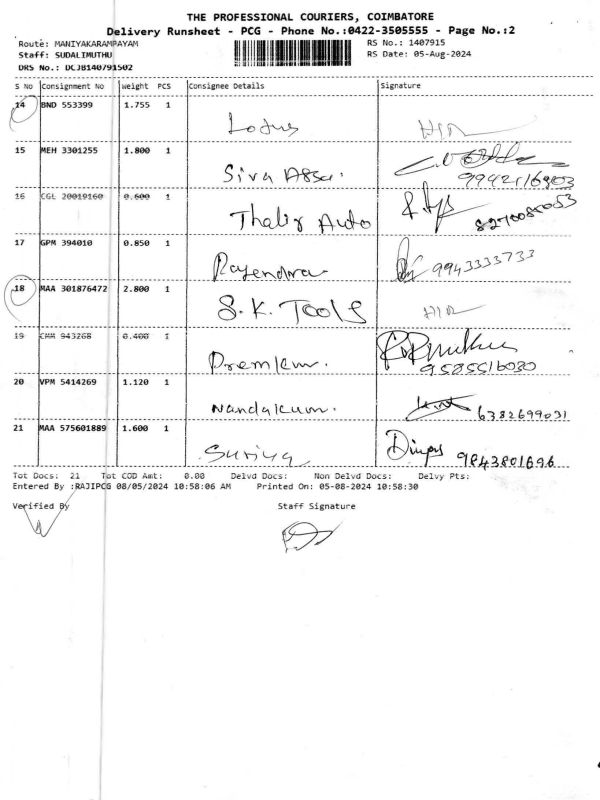 THE PROFESSIONAL COURIERS, COIMBATORE
Delivery Runsheet - PCG - Phone No.:0422-3505555 - Page No.:2
Route: MANIYAKARAMPAYAM RS No.: 1407915
Staff: SUDALIMUTHU RS Date: 05-Aug-2024
DRS No.: DCJB140791502
S No Consignment No Weight PCS Consignee Details Signature
14 BND 553399 1.755 1
Lotus
15 MEH 3301255 1.800 1
Siva Assa.
16 CGL 20019160 0.600 1
Thalir Auto 8270085053
17 GPM 394010 0.850 1
Rajendra 9943333733
18 MAA 301876472 2.800 1
S.K. Tools
19 CHM 943268 0.400 1
Premkum. 9585516030
20 VPM 5414269 1.120 1
Nandakum. 6382699031
21 MAA 575601889 1.600 1
Suriya 9843801696
Tot Docs: 21 Tot COD Amt: 0.00 Delvd Docs: Non Delvd Docs: Delvy Pts:
Entered By :RAJIPCG 08/05/2024 10:58:06 AM Printed On: 05-08-2024 10:58:30
Verified By Staff Signature